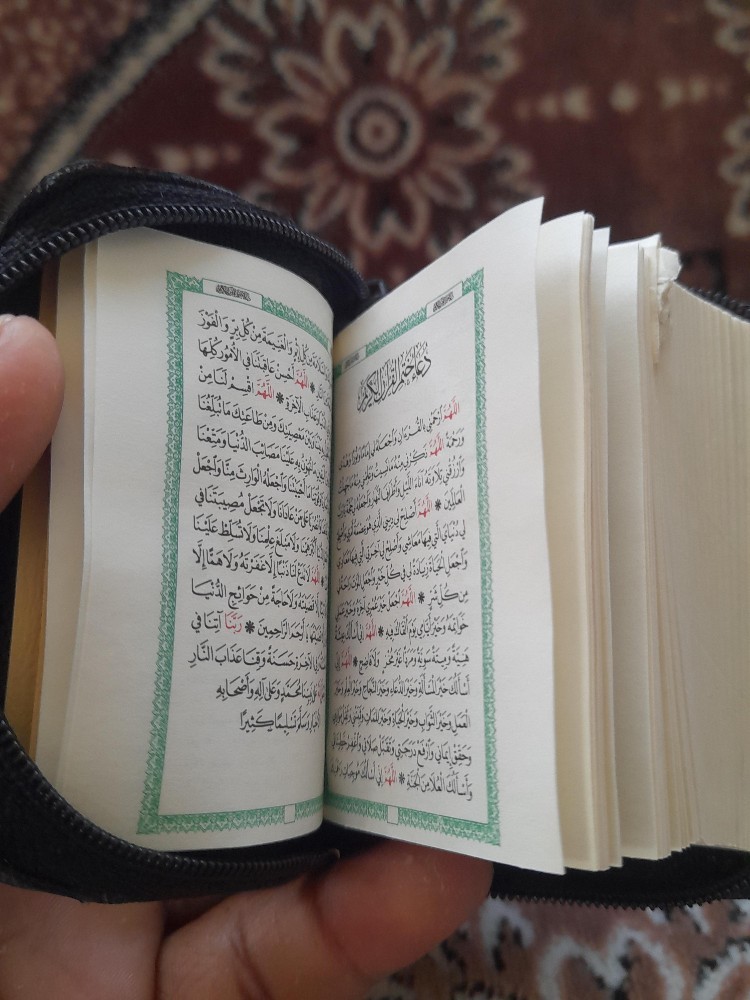 دُعَاءُ خَتْمِ الْقُرْآنِ الْكَرِيمِ
اللَّهُمَّ ارْحَمْنِي بِالْقُرْءَانِ وَاجْعَلْهُ لِي إِمَامًا وَنُورًا وَهُدًى
وَرَحْمَةً اللَّهُمَّ ذَكِّرْنِي مِنْهُ مَا نَسِيتُ وَعَلِّمْنِي مِنْهُ مَا جَهِلْتُ
وَارْزُقْنِي تِلَاوَتَهُ آنَاءَ اللَّيْلِ وَأَطْرَافَ النَّهَارِ وَاجْعَلْهُ لِي حُجَّةً
الْعَالَمِينَ * اللَّهُمَّ أَصْلِحْ لِي دِينِي الَّذِي هُوَ عِصْمَةُ أَمْرِي وَأَصْلِحْ
لِي دُنْيَايَ الَّتِي فِيهَا مَعَاشِي وَأَصْلِحْ لِي آخِرَتِي الَّتِي فِيهَا مَعَادِي
وَاجْعَلِ الْحَيَاةَ زِيَادَةً لِي فِي كُلِّ خَيْرٍ وَاجْعَلِ الْمَوْتَ رَاحَةً لِي
مِنْ كُلِّ شَرٍّ * اللَّهُمَّ اجْعَلْ خَيْرَ عُمْرِي آخِرَهُ وَخَيْرَ عَمَلِي
خَوَاتِمَهُ وَخَيْرَ أَيَّامِي يَوْمَ أَلْقَاكَ فِيهِ * اللَّهُمَّ إِنِّي أَسْأَلُكَ عِيشَةً
هَنِيَّةً وَمِيتَةً سَوِيَّةً وَمَرَدًّا غَيْرَ مُخْزٍ وَلَا فَاضِحٍ * اللَّهُمَّ إِنِّي
أَسْأَلُكَ خَيْرَ الْمَسْأَلَةِ وَخَيْرَ الدُّعَاءِ وَخَيْرَ النَّجَاحِ وَخَيْرَ الْعِلْمِ وَخَيْرَ
الْعَمَلِ وَخَيْرَ الثَّوَابِ وَخَيْرَ الْحَيَاةِ وَخَيْرَ الْمَمَاتِ وَثَبِّتْنِي وَثَقِّلْ مَوَازِينِي
وَحَقِّقْ إِيمَانِي وَارْفَعْ دَرَجَتِي وَتَقَبَّلْ صَلَاتِي وَاغْفِرْ خَطِيئَاتِي
وَأَسْأَلُكَ الْعُلَا مِنَ الْجَنَّةِ * اللَّهُمَّ إِنِّي أَسْأَلُكَ مُوجِبَاتِ رَحْمَتِكَ
مِنْ كُلِّ إِثْمٍ وَالْغَنِيمَةَ مِنْ كُلِّ بِرٍّ وَالْفَوْزَ
* اللَّهُمَّ أَحْسِنْ عَاقِبَتَنَا فِي الْأُمُورِ كُلِّهَا
وَعَذَابِ الْآخِرَةِ * اللَّهُمَّ اقْسِمْ لَنَا مِنْ
مَعْصِيَتِكَ وَمِنْ طَاعَتِكَ مَا تُبَلِّغُنَا
تُهَوِّنُ بِهِ عَلَيْنَا مَصَائِبَ الدُّنْيَا وَمَتِّعْنَا
أَحْيَيْتَنَا وَاجْعَلْهُ الْوَارِثَ مِنَّا وَاجْعَلْ
عَلَى مَنْ عَادَانَا وَلَا تَجْعَلْ مُصِيبَتَنَا فِي
وَلَا مَبْلَغَ عِلْمِنَا وَلَا تُسَلِّطْ عَلَيْنَا
اللَّهُمَّ لَا تَدَعْ لَنَا ذَنْبًا إِلَّا غَفَرْتَهُ وَلَا هَمًّا إِلَّا
قَضَيْتَهُ وَلَا حَاجَةً مِنْ حَوَائِجِ الدُّنْيَا
أَرْحَمَ الرَّاحِمِينَ * رَبَّنَا آتِنَا فِي
الْآخِرَةِ حَسَنَةً وَقِنَا عَذَابَ النَّارِ
نَبِيِّنَا مُحَمَّدٍ وَعَلَى آلِهِ وَأَصْحَابِهِ
وَسَلَّمَ تَسْلِيمًا كَثِيرًا